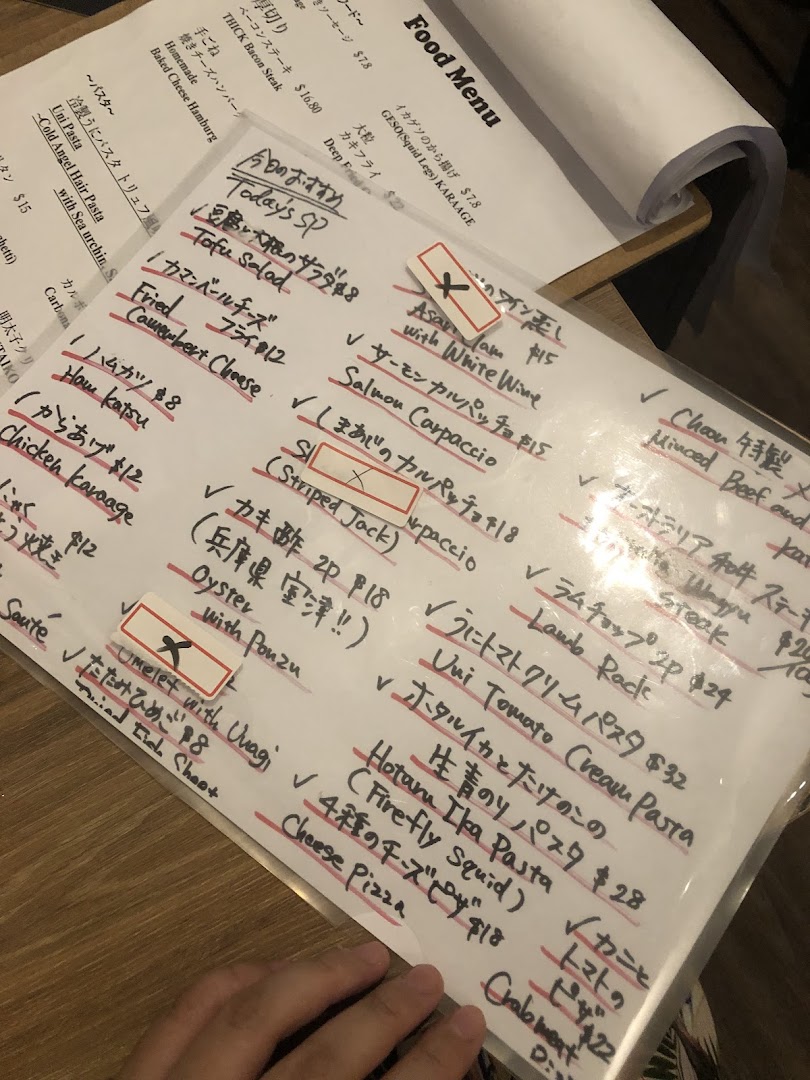 Food Menu
$7.8
厚切り
ベーコンステーキ
THICK Bacon Steak
$16.80
手ごね
焼きチーズハンバーグ
Homemade
Baked Cheese Hamburg
イカゲソのから揚げ
GESO(Squid Legs) KARAAGE
$7.8
大粒
カキフライ
Deep
~パスタ~
冷製うにパスタ トリュフ
Uni Pasta
~Cold Angel Hair Pasta
with Sea urchin,
$15
カルボ
Carbon
明太子クリ
今日のおすすめ
Today's SP
✓豆腐と大根のサラダ $8
Tofu Salad
カマンベールチーズ
フライ $12
Fried
Camembert Cheese
ハムカツ $8
Ham katsu
からあげ $12
Chicken Karaage
$12
Sauté
✓たたみひめご $8
X
のワイン蒸し
$15
with White Wine
✓サーモンカルパッチョ $15
Salmon Carpaccio
✓しまあじのカルパッチョ $18
X
(Striped Jack)
✓カキ酢 2P $18
(兵庫県 室津!!)
Oyster
with Ponzu
X
Omelet with Unagi
✓ 特製
Minced Beef and
✓オーストラリア和牛ステーキ
Wagyu
steak
✓ラムチョップ 2P $24
Lamb Rack
✓うにトマトクリームパスタ $32
Uni Tomato Cream Pasta
✓ホタルイカとたけのこの
生青のりパスタ $28
Hotaru Ika Pasta
(Firefly Squid)
✓4種のチーズピザ $18
Cheese Pizza
✓カニと
トマトの
ピザ $22
Crabmeat